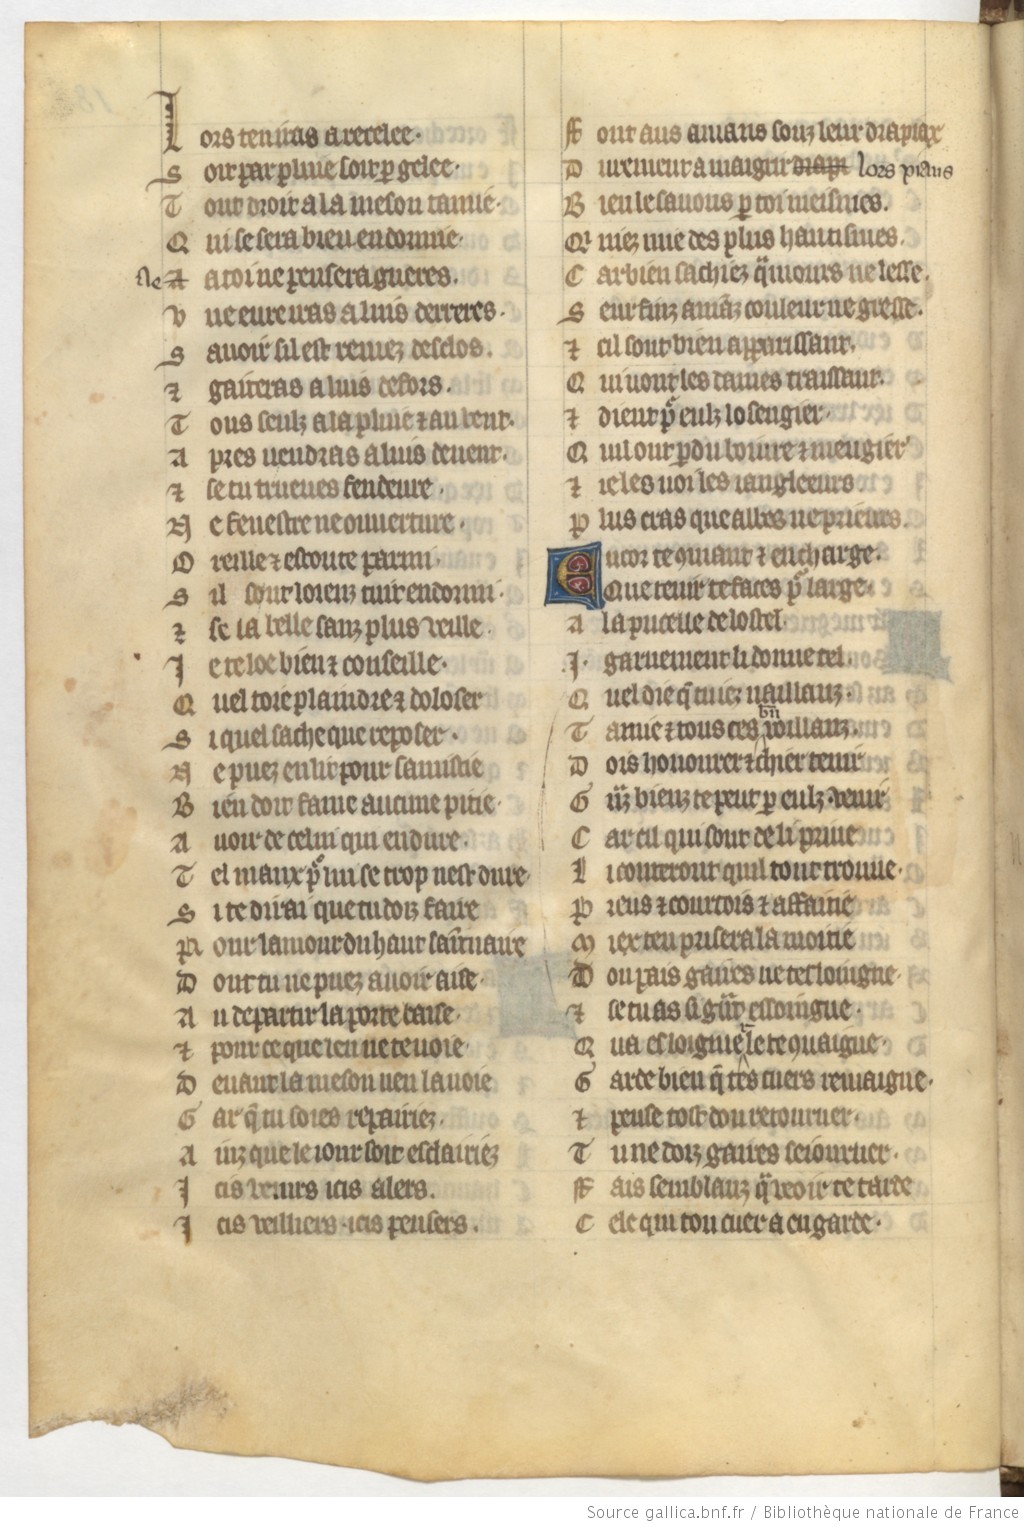 Lors ten iras a recelee.
Soit par pluie soit p gelee.
Tout droit a la meson tamie.
Qui se sera bien endormie.
Ne
⁊ a toi ne pensera gueres.
Vne eure iras a luis derreres.
Sauoir sil est remez desclos.
⁊ gaiteras a luis defors.
Tous seulz a la pluie ⁊ au vent.
Apres uendras a luis deuent.
⁊ se tu trueues fendeure.
Ne fenestre ne ouuerture.
Oreille ⁊ escoute parmi.
Sil sont loienz tuit endormi.
⁊ se la belle sanz plus veille.
Ie te loe bien ⁊ conseille.
Quel toie plaindre ⁊ doloser
Si quel sache que reposer.
Ne puez en lit pour samistie
Bien doit fame aucune pitie.
Auoir de celui qui endure.
Tel maux por lui se trop nest dure.
Si te dirai que tu doiz faire
Pour lamour du haut saintuaire
Dont tu ne puez auoir aise.
Au departir la porte baise.
⁊ pour ce que len ne te uoie.
Deuant la meson nen la uoie
Gar q̃ tu soies repairiez.
Ainz que le iour soit esclairiez
Icis venirs icis alers.
Icis veilliers icis pensers.
Font aus amans souz leur drapiax
Durement amaigrir drapi lors piaus
Bien le sauous p toi meismes.
Quiez mie des plus hautismes.
Car bien sachiez q̃ mours ne lesse.
Seur finz amãz couleur ne gresse.
⁊ cil sont bien apparissant.
Qui uont les dames traissant.
⁊ dient por eulz losengier.
Quil ont pdu boiure ⁊ mengier
⁊ ie les uoi les iangleeurs.
Plus cras que abbes ne prieurs.
Encor te ꝯmant ⁊ encharge.
Que tenir te faces por large.
A la pucelle de lostel.
I. garnement li donne tel.
Quel die q̃ tuiez uaillanz.
Tamie ⁊ tous ces bñ uoillanz.
Dois honourer ⁊ chier tenir
Granz bienz te peut p eulz venir
Car cil qui sont de li priue
Li conteront quil tont trouue.
Preus ⁊ courtois ⁊ affaitie
Miex ten prisera la moitie
Dou pais gaires ne tesloingne.
⁊ se tu as si grant essoingne.
Qua esloignier le te ꝯuaigne.
Garde bien q̃ tes cuers remaigne.
⁊ pense tost dou retourner.
Tu ne doiz gaires seiourner.
Fais semblanz q̃ veoir te tarde
Cele qui ton cuer a en garde.
Source gallica.bnf.fr / Bibliothèque nationale de France